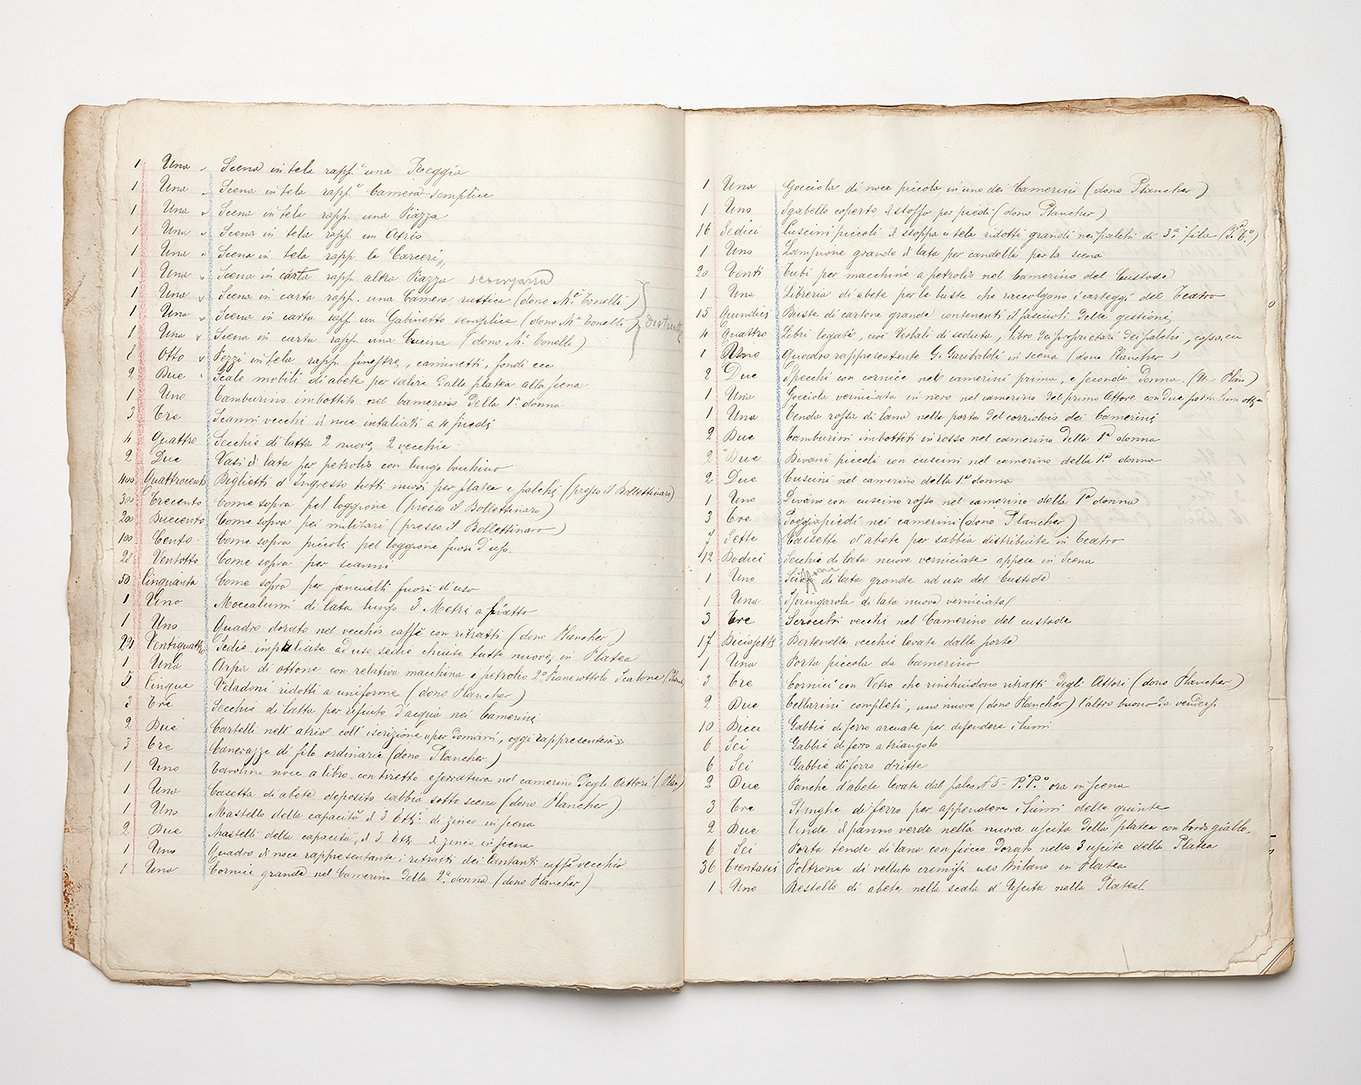 1 Una Scena in tela rapp.e una Reggia
1 Una Scena in tela rapp.e Camera semplice
1 Una Scena in tela rapp. una Piazza
1 Una Scena in tela rapp. un Atrio
1 Una Scena in tela rapp. le Carceri,
1 Una Scena in carta rapp. altra Piazza
1 Una Scena in carta rapp. una Camera rustica (dono M.o Tonelli)
1 Una Scena in carta rapp. un Gabinetto semplice (dono M.o Tonelli)
1 Una Scena in carta rapp. una Cucina (dono M.o Tonelli)
8 Otto Pezzi in tela rapp. finestre, caminetti, fondi ecc
2 Due Scale mobili di abete per salire dalla platea alla scena
1 Uno Tamburino imbottito nel Camerino della 1a donna
3 Tre Scanni vecchi di noce intaliati a 4 piedi
4 Quattro Secchie di latta 2 nuove, 2 vecchie
2 Due Vasi di lata per petrolio con lungo bocchino
400 Quattrocento Biglietti d'Ingresso tutti nuovi per platea e palchi (presso il Bollettinaro)
300 Trecento Come sopra pel loggione (presso il Bollettinaro)
200 Duecento Come sopra pei militari (presso il Bollettinaro)
100 Cento Come sopra piccoli pel loggione fuori d'uso
28 Ventotto Come sopra per scanni
50 Cinquanta Come sopra per fanciulli fuori d'uso
1 Uno Moccalumi di lata lungo 3 Metri a piatto
1 Uno Quadro dorato nel vecchio caffè con ritratti (dono Plancher)
24 Ventiquattro Sedie impaliate ad uso sedie chiuse tutte nuove, in Platea
1 Una Arpa di ottone con relativa macchina a petrolio 2o Pianerottolo Scalone
5 Cinque Veladoni ridotti a uniforme (dono Plancher)
3 Tre Secchie di latta per rifiuto d'acqua nei Camerini
2 Due Cartelli nell'atrio coll'iscrizione "per domani, oggi rappresentasi"
3 Tre Canevazze di filo ordinarie (dono Plancher)
1 Uno Tavolino noce a libro con tiretto e serratura nel camerino degli Attori
1 Una Casetta di abete deposito sabbia sotto scena (dono Plancher)
1 Uno Mastello della capacità di 3 Ett. di zinco in scena
2 Due Mastelli della capacità di 3 Ett. di zinco in scena
1 Uno Quadro di noce rappresentante i ritratti dei cantanti caffè vecchio
1 Una Cornice grande nel Camerino della 2a donna (dono Plancher)
1 Una Gocciola di noce piccola in uno dei Camerini (dono Plancher)
1 Uno Sgabello coperto di stoffa per piedi (dono Plancher)
16 Sedici Cuscini piccoli di stoppa e tela ridotti grandi nei palchi di 3a fila
1 Uno Lampione grande di lata per candella per la scena
20 Venti Tubi per macchine a petrolio nel Camerino del Custode
1 Una Libreria di abete per le buste che raccolgono i carteggi del Teatro
15 Quindici Buste di cartone grande contenenti i fascicoli delle gestioni,
4 Quattro Libri legati, cioè Verbali di seduta, libro dei proprietari dei palchi, cassa, ecc
1 Uno Quadro rappresentante G. Garibaldi in scena (dono Plancher)
2 Due Specchi con cornice nel camerini prima, e seconda Donna
1 Una Gocciola verniciata in nero nel camerino del primo Attore con due porta lumi
1 Una Tenda rossa di lana nella porta del corridoio dei Camerini
2 Due Tamburini imbottiti in rosso nel camerino della 1a donna
2 Due Divani piccoli con cuscini nel camerino della 1a donna
2 Due Cuscini nel camerino della 1a donna
1 Uno Divano con cuscino rosso nel camerino della 1a donna
3 Tre Poggiapiedi nei camerini (dono Plancher)
7 Sette Cassette d'abete per sabbia distribuite in Teatro
12 Dodici Secchie di lata nuove verniciate appese in Scena
1 Uno di lata grande ad uso del Custode
1 Una Springarola di lata nuova verniciata
3 Tre vecchi nel Camerino del custode
17 Diciasette Bertenelle vecchie levate dalle porte
1 Una Porta piccola da Camerino
3 Tre Cornici con Vetro che rinchiudono ritratti degli Attori (dono Plancher)
2 Due completi, uno nuovo (dono Plancher) l'altro buono da vendersi
10 Dieci Gabbie di ferro arcuate per difendere i lumi
6 Sei Gabbie di ferro a triangolo
6 Sei Gabbie di ferro dritte
2 Due Panche d'abete levate dal palco No 5 ora in scena
3 Tre Stanghe di ferro per appendere i lumi delle quinte
2 Due Tende di panno verde nella nuova uscita della platea con bordo giallo,
6 Sei Porta tende di lana con fiocco dorato nelle 3 uscite della Platea
36 Trentasei Poltrone di velluto cremisi uso Milano in Platea
1 Uno Restello di abete nella scala d'Uscita nella Platea